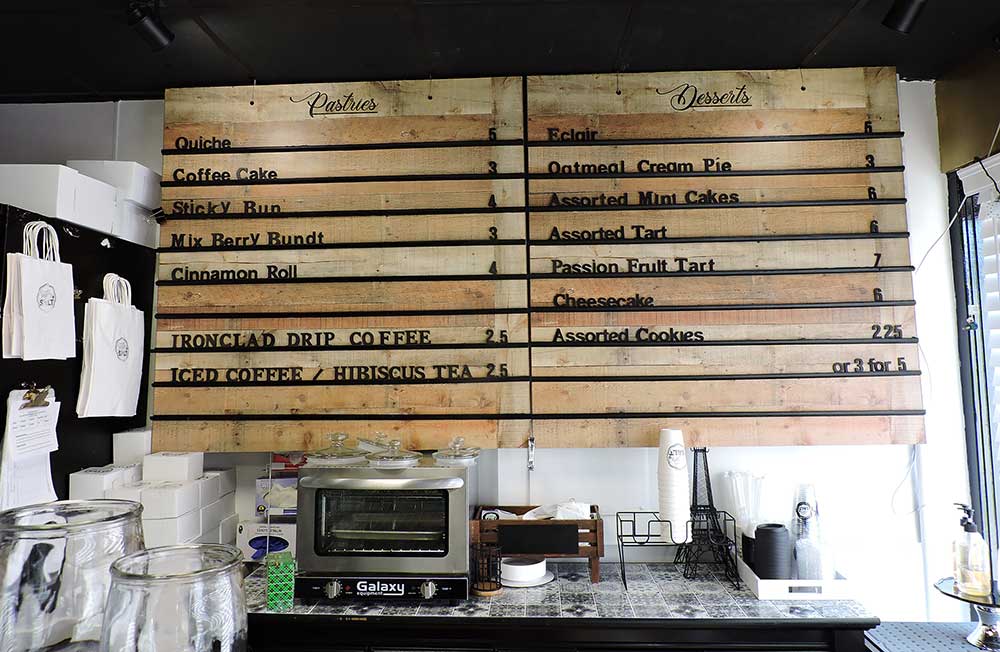 Pastries
Quiche 5
Coffee Cake 3
Sticky Bun 4
Mix Berry Bundt 3
Cinnamon Roll 4
IRONCLAD DRIP COFFEE 2.5
ICED COFFEE / HIBISCUS TEA 2.5
Desserts
Eclair 5
Oatmeal Cream Pie 3
Assorted Mini Cakes 6
Assorted Tart 6
Passion Fruit Tart 7
Cheesecake 6
Assorted Cookies 2.25
or 3 for 5
SALT
SALT
SALT
Galaxy
equipment